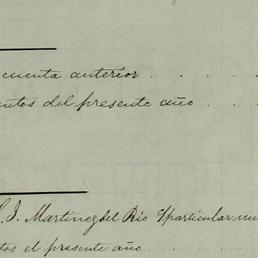 cuenta anterior . . . .
ntos del presente año . . .
J. Martinez del Rio particular nu
tos el presente año . . . .